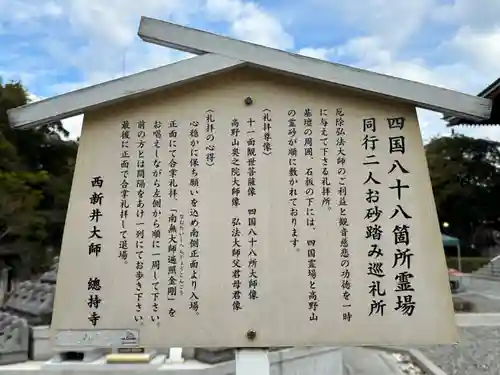 四国八十八箇所霊場
同行二人お砂踏み巡礼所
厄除弘法大師のご利益と観音慈悲の功徳を一時
に与えて下さるお礼拝所。
基壇の周囲、石板の下には、四国霊場と高野山
の霊砂が順に敷かれております。
(礼拝尊像)
十一面観世音菩薩像 四国八十八所大師像
高野山奥之院大師像 弘法大師父君母君像
(礼拝の心得)
心穏かに保ち願いを込め南側正面より入場。
正面にて合掌礼拝、「南無大師遍照金剛」を
お唱えしながら左側から順に一周して下さい。
前の方とは間隔をあけ一列にてお歩き下さい。
最後に正面で合掌礼拝して退場。
西新井大師 總持寺